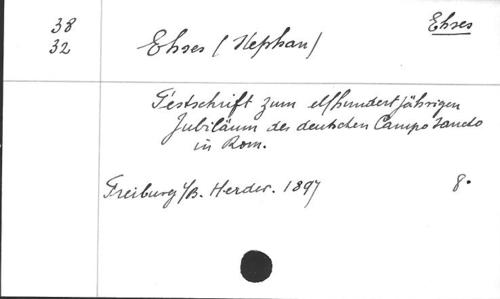 38
32
Ehses
Ehses (Stephan)
Festschrift zum elfhundertjährigen
Jubiläum des deutschen Campo Sancto
in Rom.
Freiburg i/B. Herder. 1897
8.